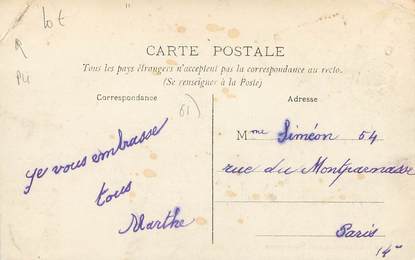 lot
CARTE POSTALE
Tous les pays étrangers n'acceptent pas la correspondance au recto.
(Se renseigner à la Poste)
Correspondance
Adresse
Je vous embrasse
tous
Marthe
Mme Siméon 54
rue du Montparnasse
Paris
14e